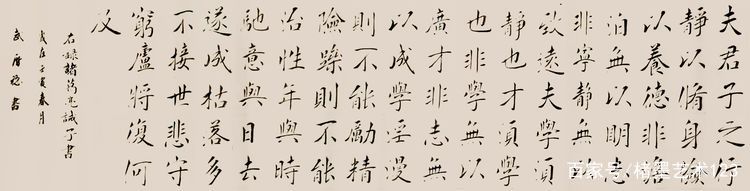 夫君子之行
靜以脩身儉
以養德非澹
泊無以明志
非寧靜無以
致遠夫學須
靜也才須學
也非學無以
廣才非志無
以成學淫漫
則不能勵精
險躁則不能
治性年與時
馳意與日去
遂成枯落多
不接世悲守
窮廬將復何
及
右録諸葛亮誡子書
歲在壬寅春月
書
百家号/楷墨艺术123